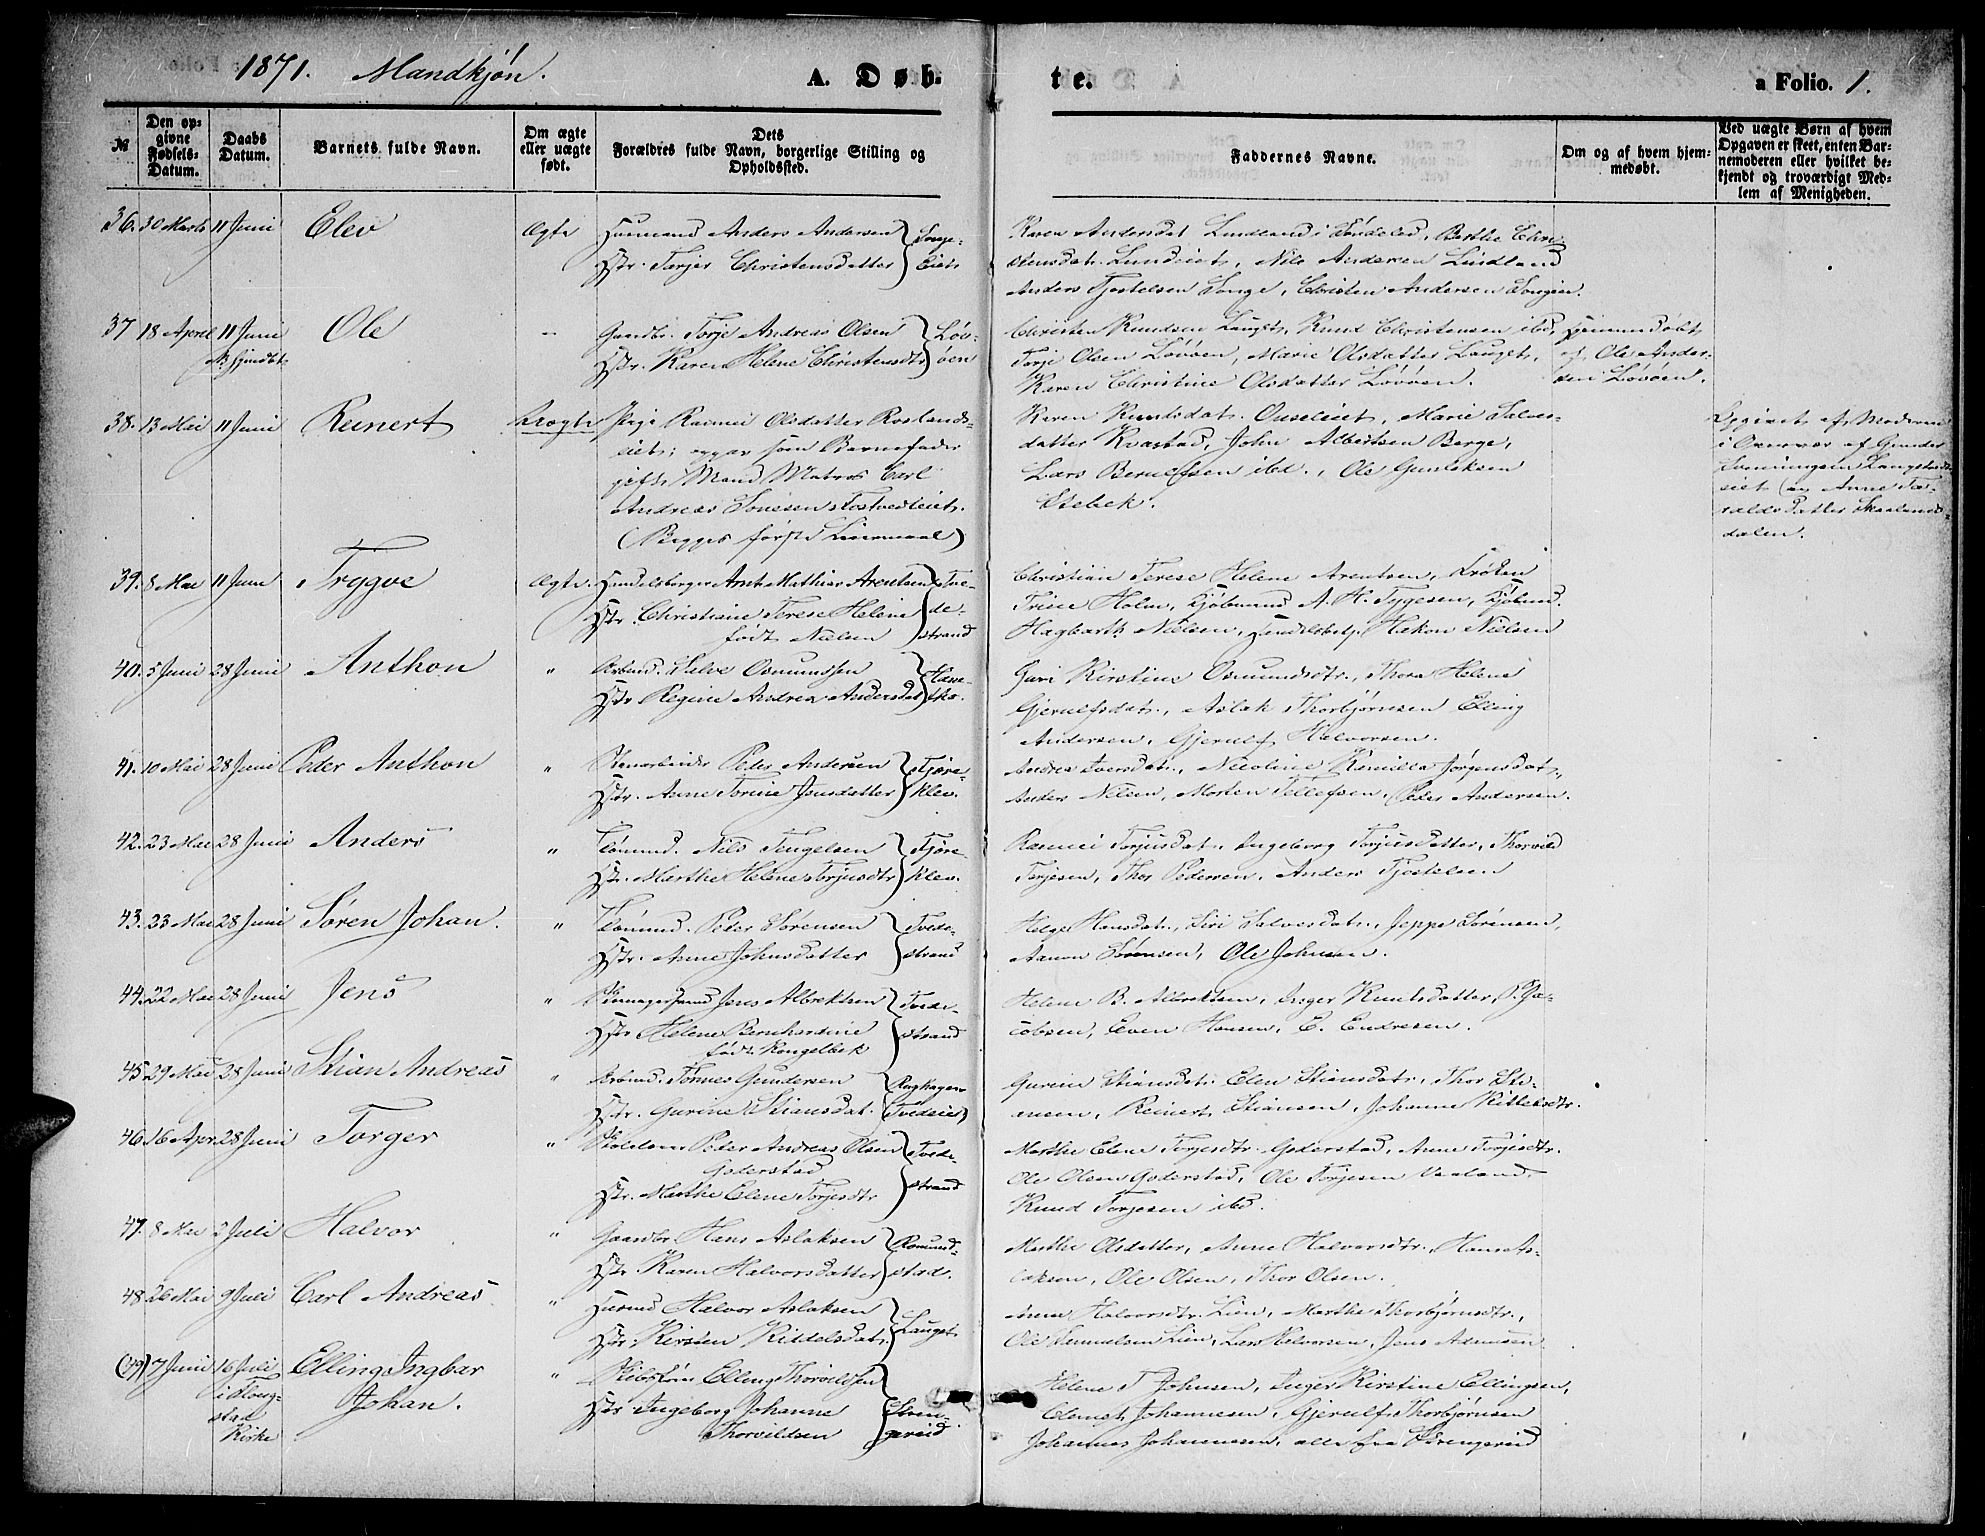 1871. Mandkjön. A. Døb- te. a Folio. 1.
№
Den op-
givne
Fødsels-
Datum.
Daabs
Datum.
Barnets fulde Navn.
Om ægte
eller uægte
født.
Dets
Forældres fulde Navn, borgerlige Stilling og
Opholdssted.
Faddernes Navne.
Om og af hvem hjem-
medøbt.
Ved uægte Børn af hvem
Opgaven er skeet, enten Bar-
nemoderen eller hvilket be-
kjendt og troværdigt Med-
lem af Menigheden.
36. 30 Marts 11 Juni Elev Ægte Huusmand Anders Andersen Songe-
Hstr. Torjer Christensdatter eiet.
Karen Andersdat Lindland i Søndeled, Berthe Chri-
stensdat. Lundeiet, Nils Andersen Lindland
Anders Tjostelsen Songe, Christen Andersen Songeei.
37 18 April 11 Juni Ole Gaardbr. Torje Andreas Olsen Løv-
Hstr. Karen Helene Christensdtr øen
Christen Knudsen Lauget, Knud Christensen ibd,
Torje Olsen Løvöen, Marie Olsdatter Lauget,
Karen Christine Olsdatter Lövöen.
Hjemmedöbt
af Ole Ander-
sen Lövöen.
38. 13 Mai 11 Juni Reinert Uægte Pige Rasmei Olsdatter Roslands-
eiet; opgav som Barnefader
gift Mand Matros Carl
Andreas Tostvedteiet.
(Begges første Leiermaal)
Karen Knudsdat. Marie Salves-
datter Kvastad, John Albertsen Berge,
Lars Berulfsen ibd., Ole Gunleksen
Stebek.
Opgivet af Moderen
i Overvær af Gunder
eiet og Anne Ta-
raldsdatter Skaalands-
dalen.
39. 8 Mai 11 Juni Tryggve Ægte. Handelsborger Arnt Mathias Arentsen Tve-
Hstr. Christiane Terese Helene de-
født Nielsen strand
Christian Terese Helene Arentsen, Fröken
Trine Holm, Kjöbmand A. H. Tygesen, Kjöbmd.
Hagbarth Nielsen, Handelsbetj. Hakon Nielsen
40. 5 Juni 28 Juni Anthon " Arbmd. Salve Osmundsen
Hstr Regine Andrea Andersdat
Guri Kirstine Osmundsdtr., Thora Helene
Gjerulfsdat., Aslak Thorbjørnsen Elling
Andersen, Gjerulf Halvorsen.
41. 10 Mai 28 Juni Peder Anthon " Peder Andersen Tjöre-
Hstr. Anne Torine Jensdatter klev.
Andrea Iversdat., Nicoline Kamilla Jørgensdat.,
Anders Nilsen, Morten Tellefsen, Peder Andersen.
42. 23 Mai 28 Juni Anders " Sömnd. Nils Tengelsen Tjöre-
Hstr. Marthe Helene Torjusdtr klev.
Rasmei Torjusdat., Ingeborg Torjusdatter, Thorvild
Torjesen, Thor Pedersen, Anders Tjostelsen
43. 23 Mai 28 Juni Søren Johan. " Sömnd. Peder Sørensen Tvede-
Hstr. Anne Johnsdatter strand
Helge Hansdat., Siri Salvesdat., Jeppe Sörensen,
Aanon Sörensen, Ole Johnsen.
44. 22 Mai 28 Juni Jens " Jens Albrektsen Tvede-
Hstr Helene Bernhardine strand
født Rongelbek
Helene B. Albrektsen, Inger Knutsdatter, P. Ja-
cobsen, Even Hansen, E. Endresen.
45 29 Mai 28 Juni Stian Andreas " Arbmd. Tønnes Gundersen Berghagen
Hstr. Gurine Stiansdat. (Tvedeiet)
Gurine Stiansdat. Elen Stiansdat., Thor Sti-
ansen, Reinert Stiansen, Johanne Kittelsdtr.
46. 16 Apr. 28 Juni Torger " Peder Andreas Olsen Tvede-
Goderstad strand
Hstr. Marthe Elene Torjesdtr
Marthe Elene Torjesdtr. Goderstad, Anne Torjesdtr.
Ole Olsen Goderstad, Ole Torjesen Vaaland.
Knud Torjesen ibd.
47. 8 Mai 2 Juli Halvor " Gaardbr Hans Aslaksen Romund-
Hstr Karen Halvorsdatter stad.
Marthe Olsdatter, Anne Halvorsdtr., Hans As-
laksen, Ole Olsen, Thor Olsen.
48 26 Mai 9 Juli Carl Andreas " Husmd Halvor Aslaksen Lauget
Hstr. Kirsten Kittelsdat.
Anne Halvorsdtr. Lien, Marthe Thorbjørnsdtr.,
Ole Samuelsen Lien, Lars Halvorsen, Jens Asmundsen
(49) 7 Juni 16 Juli Elling Ingbar
Johan.
i Kirke
" Elling Thorvildsen
Hstr Ingeborg Johanne Stren-
Thorvildsen gereid
Helene T Johnsen, Inger Kirstine Ellingsen,
Clemet Johannesen, Gjerulf Thorbjörnsen
Johannes Johannessen, alle fra Strengereid